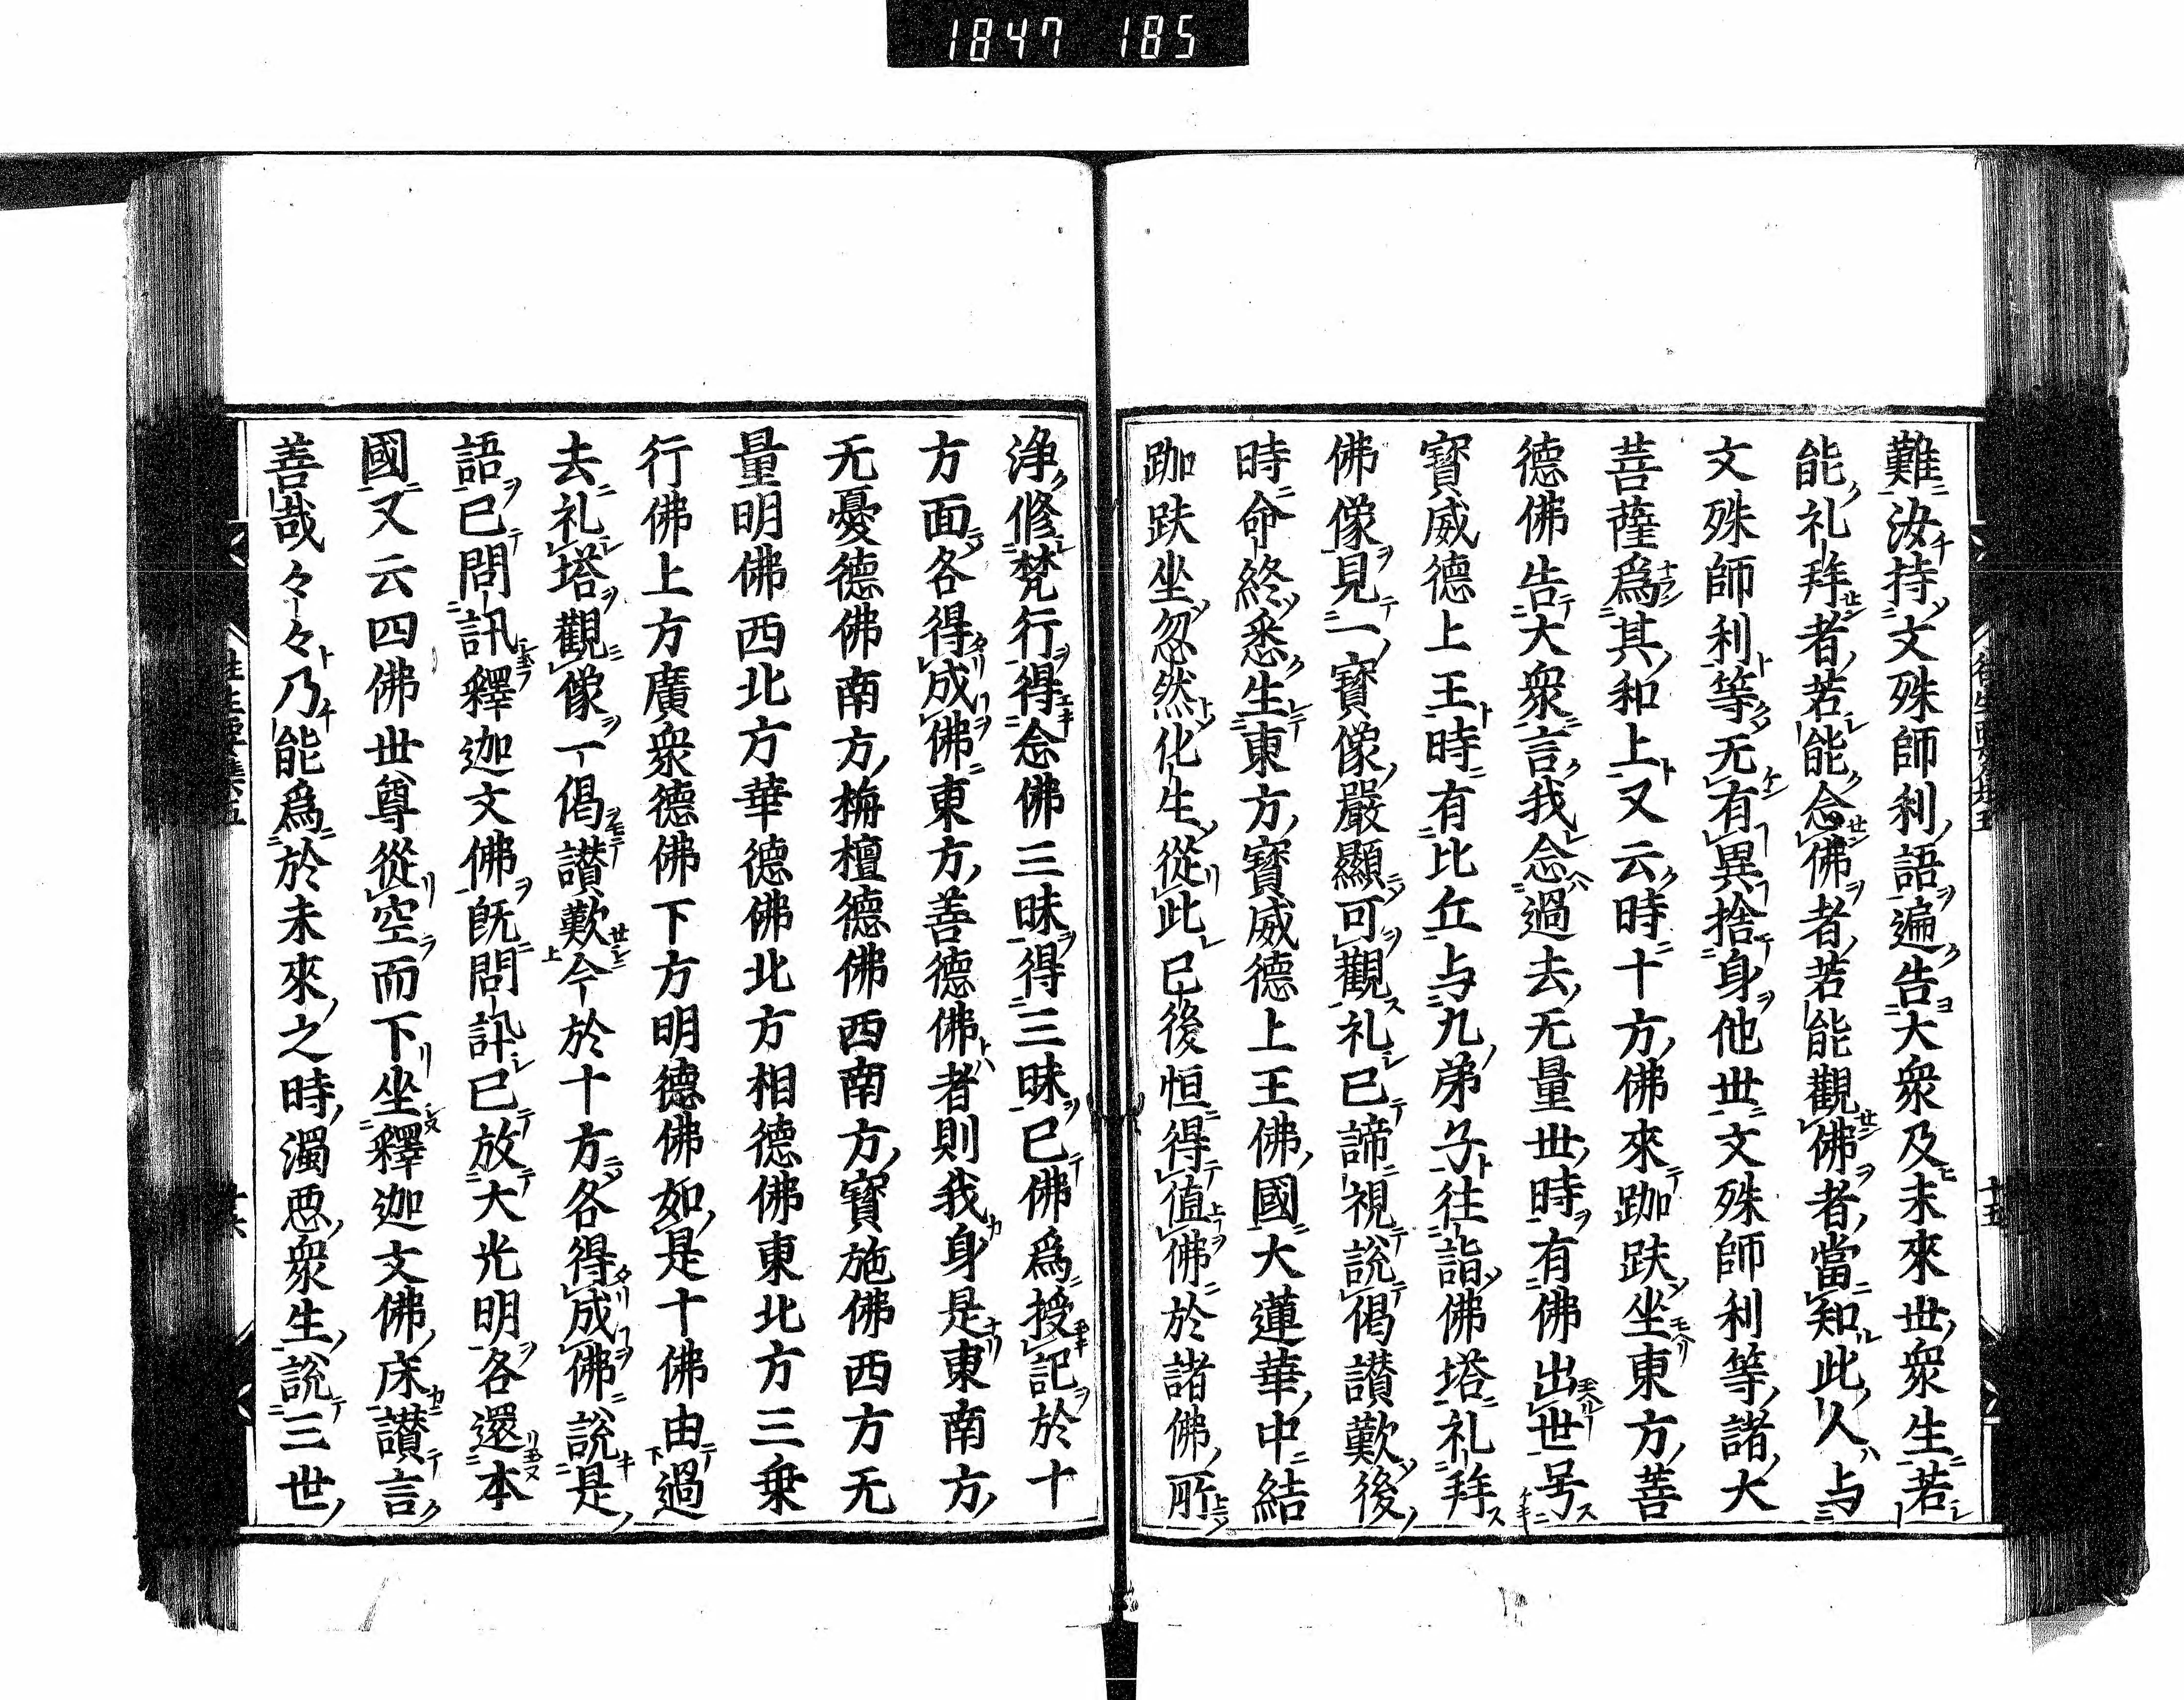 1847 185
難汝持文殊師利語遍告大衆及未來世衆生若
能礼拜者若能念佛者若能觀佛者當知此人与
文殊師利等无有異捨身他世文殊師利等諸大
菩薩爲其和上又云時十方佛來跏趺坐東方善
德佛告大衆言我念過去无量世時有佛出世号
寳威德上王時有比丘与九弟子往詣佛塔礼拜
佛像見一寳像嚴顯可觀礼已諦視說偈讃歎後
時命終悉生東方寳威德上王佛國大蓮華中結
跏趺坐忽然化生從此已後恒得值佛於諸佛所
淨修梵行得念佛三昧得三昧已佛爲授記於十
方面各得成佛東方善德佛者則我身是東南方
无憂德佛南方栴檀德佛西南方寳施佛西方无
量明佛西北方華德佛北方相德佛東北方三乗
行佛上方廣衆德佛下方明德佛如是十佛由過
去礼塔觀像一偈讃歎今於十方各得成佛說是
語已問訊釋迦文佛既問訊已放大光明各還本
國又云四佛世尊從空而下坐釋迦文佛床讃言
善哉々々乃能爲於未來之時濁悪衆生說三世